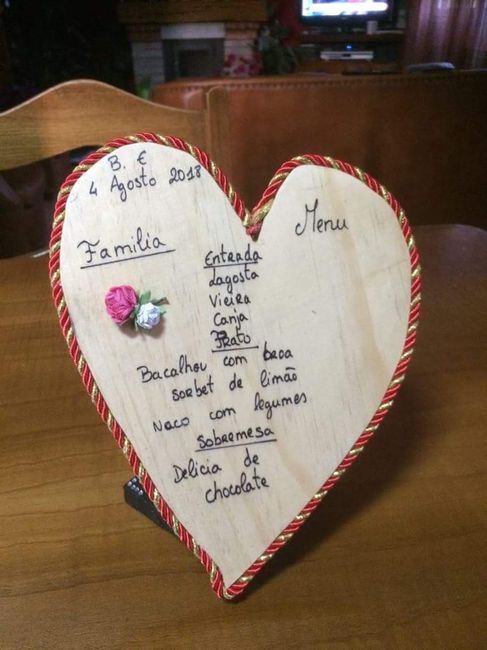 B. E
4 Agosto 2018
Menu
Familia
Entrada
Lagosta
Vieira
Canja
Prato
Bacalhau com broa
sorbet de limão
Naco com legumes
Sobremesa
Delicia de
chocolate